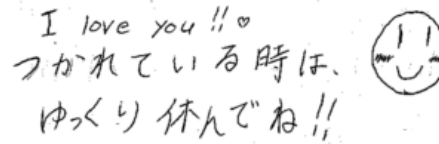 I love you!!♡
つかれている時は、
ゆっくり休んでね!!